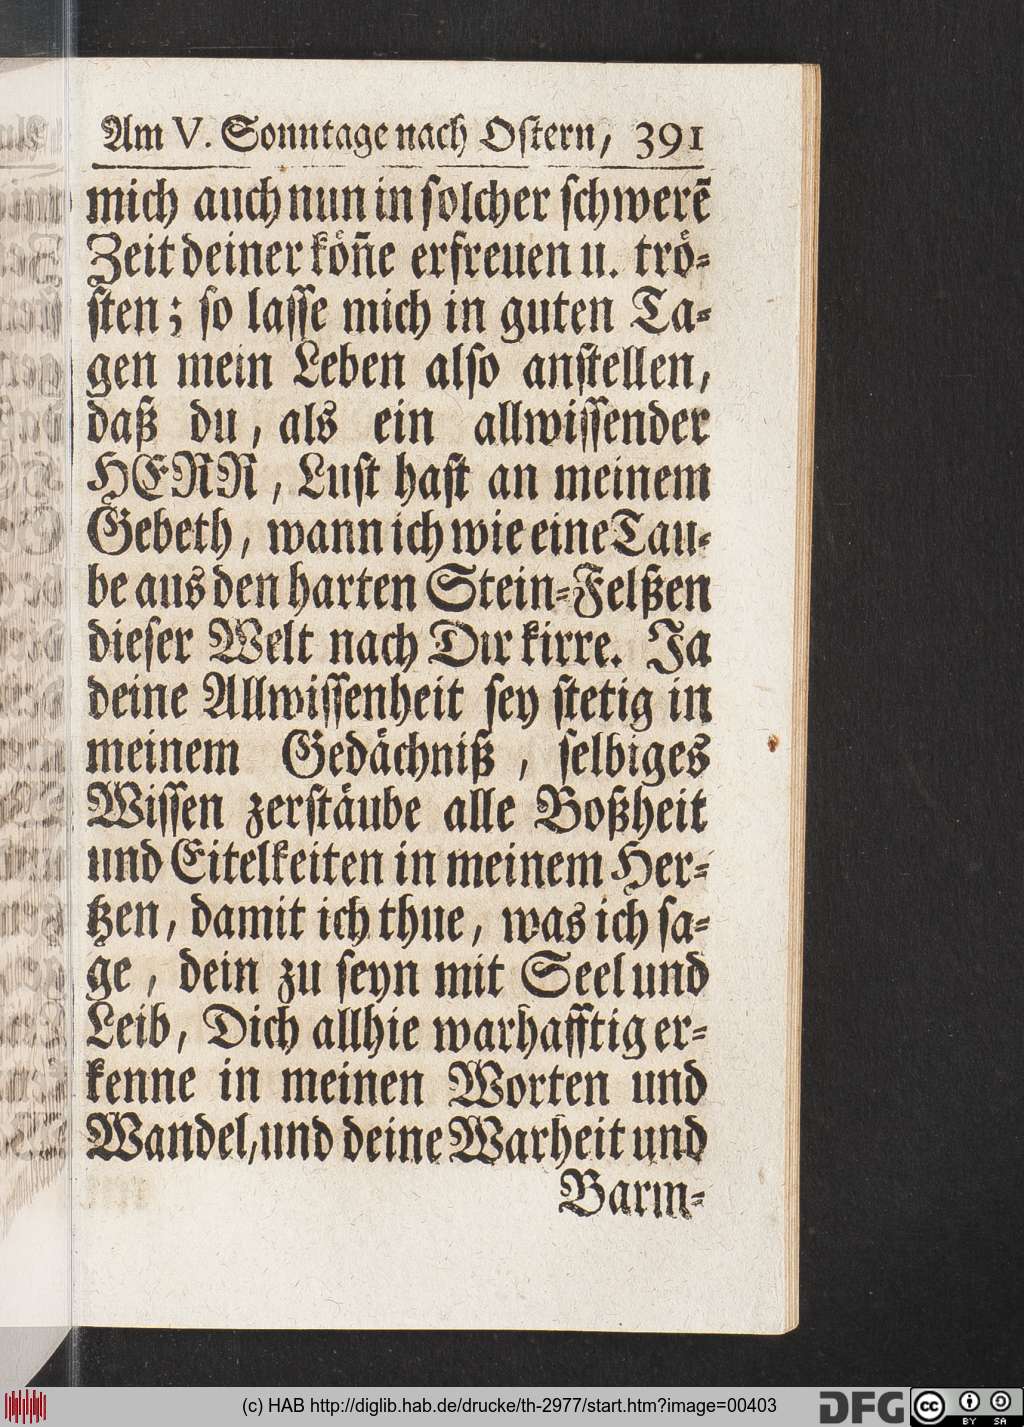 Am V. Sonntage nach Oſtern, 391
mich auch nun in ſolcher ſchwerẽ
Zeit deiner koͤñe erfreuen u. troͤ⸗
ſten; ſo laſſe mich in guten Ta⸗
gen mein Leben alſo anſtellen,
daß du, als ein allwiſſender
HERR, Luſt haſt an meinem
Gebeth, wann ich wie eine Tau⸗
be aus den harten Stein⸗Felßen
dieſer Welt nach Dir kirre. Ja
deine Allwiſſenheit ſey ſtetig in
meinem Gedaͤchniß, ſelbiges
Wiſſen zerſtaͤube alle Boßheit
und Eitelkeiten in meinem Her⸗
tzen, damit ich thue, was ich ſa⸗
ge, dein zu ſeyn mit Seel und
Leib, Dich allhie warhafftig er⸗
kenne in meinen Worten und
Wandel, und deine Warheit und
Barm⸗
(c) HAB http://diglib.hab.de/drucke/th-2977/start.htm?image=00403
DFG
cc BY SA